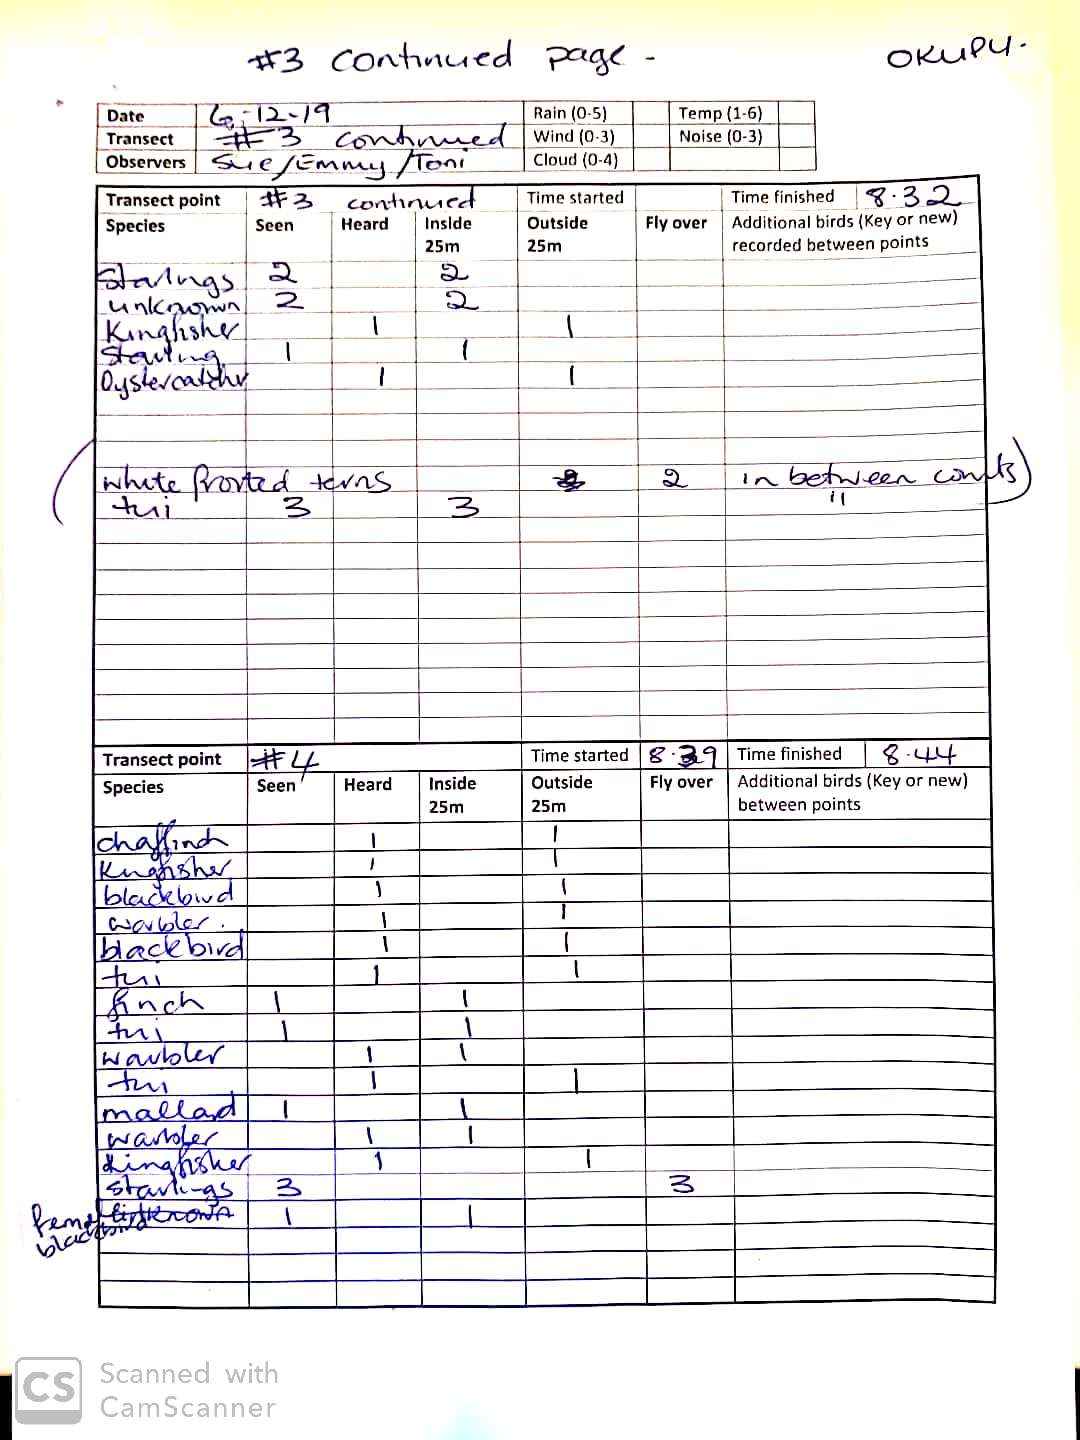 #3 continued page -
OKUPU.
Date 6-12-19 Rain (0-5) Temp (1-6)
Transect #3 continued Wind (0-3) Noise (0-3)
Observers Sue/Emmy/Toni Cloud (0-4)
Transect point #3 continued Time started Time finished 8.32
Species Seen Heard Inside 25m Outside 25m Fly over Additional birds (Key or new) recorded between points
Starlings 2 2
unknown 2 2
Kingfisher 1 1
Starling 1 1
Oystercatcher 1 1
(white fronted terns 2 in between counts)
tui 3 3 "
Transect point #4 Time started 8.39 Time finished 8.44
Species Seen Heard Inside 25m Outside 25m Fly over Additional birds (Key or new) between points
chaffinch 1 1
Kingfisher 1 1
blackbird 1 1
warbler. 1 1
blackbird 1 1
tui 1 1
finch 1 1
tui 1 1
warbler 1 1
tui 1 1
mallard 1 1
warbler 1 1
kingfisher 1 1
starlings 3 3
female unknown 1 1
blackbird
CS Scanned with
CamScanner